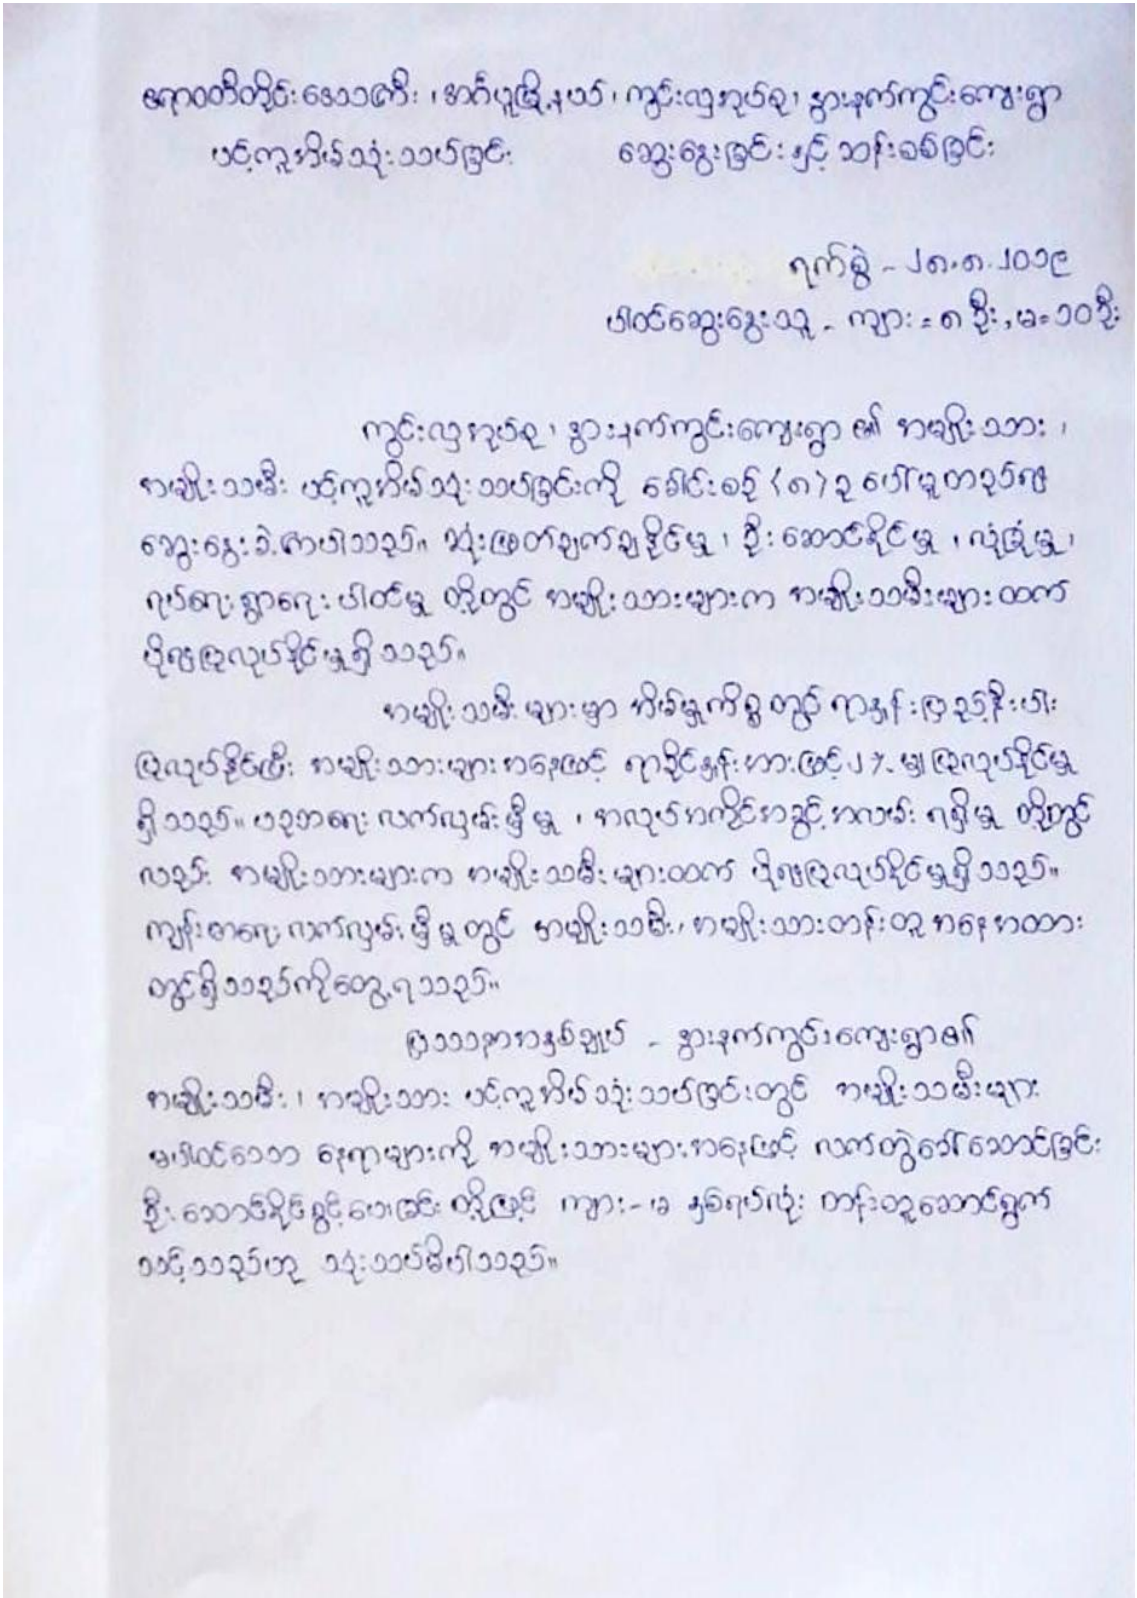 ဧရာဝတီတိုင်းဒေသကြီး၊ အင်္ဂပူမြို့နယ်၊ ကွင်းလှအုပ်စု၊ နွားနက်ကွင်းကျေးရွာ
ပင့်ကူအိမ်သုံးသပ်ခြင်း ဆွေးနွေးခြင်းနှင့် ဆန်းစစ်ခြင်း
ရက်စွဲ - ၂၈.၈.၂၀၁၉
ပါဝင်ဆွေးနွေးသူ - ကျား = ၈ ဦး, မ = ၁၀ ဦး
ကွင်းလှအုပ်စု၊ နွားနက်ကွင်းကျေးရွာ ၏ အမျိုးသား၊
အမျိုးသမီး ပင့်ကူအိမ်သုံးသပ်ခြင်းကို ခေါင်းစဉ် (၈) ခု ပေါ်မူတည်၍
ဆွေးနွေးခဲ့ကြပါသည်။ ဆုံးဖြတ်ချက်ချနိုင်မှု၊ ဦးဆောင်နိုင်မှု၊ လုံခြုံမှု၊
ရပ်ရေးရွာရေးပါဝင်မှု တို့တွင် အမျိုးသားများက အမျိုးသမီးများထက်
ပို၍ပြုလုပ်နိုင်မှုရှိသည်။
အမျိုးသမီးများမှာ အိမ်မှုကိစ္စတွင် ရာနှုန်းပြည့်နီးပါး
ပြုလုပ်နိုင်ပြီး အမျိုးသားများအနေဖြင့် ရာခိုင်နှုန်းအားဖြင့် ၂% မျှ ပြုလုပ်နိုင်မှု
ရှိသည်။ ပညာရေး လက်လှမ်းမှီမှု၊ အလုပ်အကိုင်အခွင့်အလမ်း ရရှိမှု တို့တွင်
လည်း အမျိုးသားများက အမျိုးသမီးများထက် ပို၍ပြုလုပ်နိုင်မှုရှိသည်။
ကျန်းမာရေး လက်လှမ်းမှီမှုတွင် အမျိုးသမီး၊ အမျိုးသားတန်းတူ အနေအထား
တွင်ရှိသည်ကိုတွေ့ရသည်။
ပြဿနာအနှစ်ချုပ် - နွားနက်ကွင်းကျေးရွာ၏
အမျိုးသမီး၊ အမျိုးသား ပင့်ကူအိမ်သုံးသပ်ခြင်းတွင် အမျိုးသမီးများ
မပါဝင်သော နေရာများကို အမျိုးသားများအနေဖြင့် လက်တွဲခေါ်ဆောင်ခြင်း
ဦးဆောင်နိုင်ခွင့်ပေးခြင်း တို့ဖြင့် ကျား-မ နှစ်ရပ်လုံး တန်းတူဆောင်ရွက်
သင့်သည်ဟု သုံးသပ်မိပါသည်။